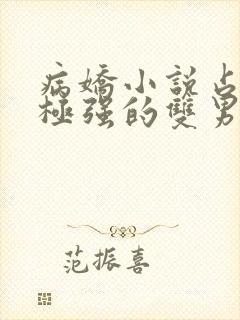 病嬌小說占
極強的雙男
范振喜